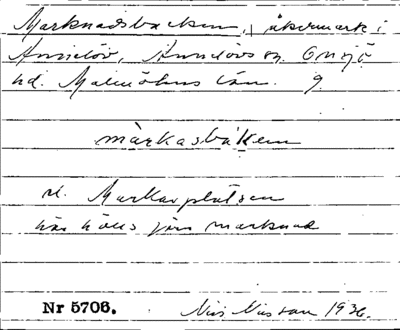 Marknadsbacken, åkermark i
Annelöv, Annelövs sn. Onsjö
hd. Malmöhus län. 9.
màrkasbàken
el. Markasplatsen
här hölls förr marknad
Nr 5706. Nils Nilsson 1936.